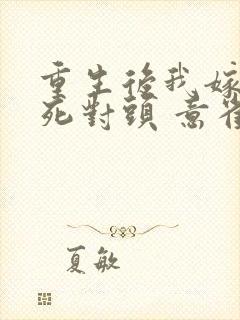 重生後我嫁
死對頭 意
夏敏